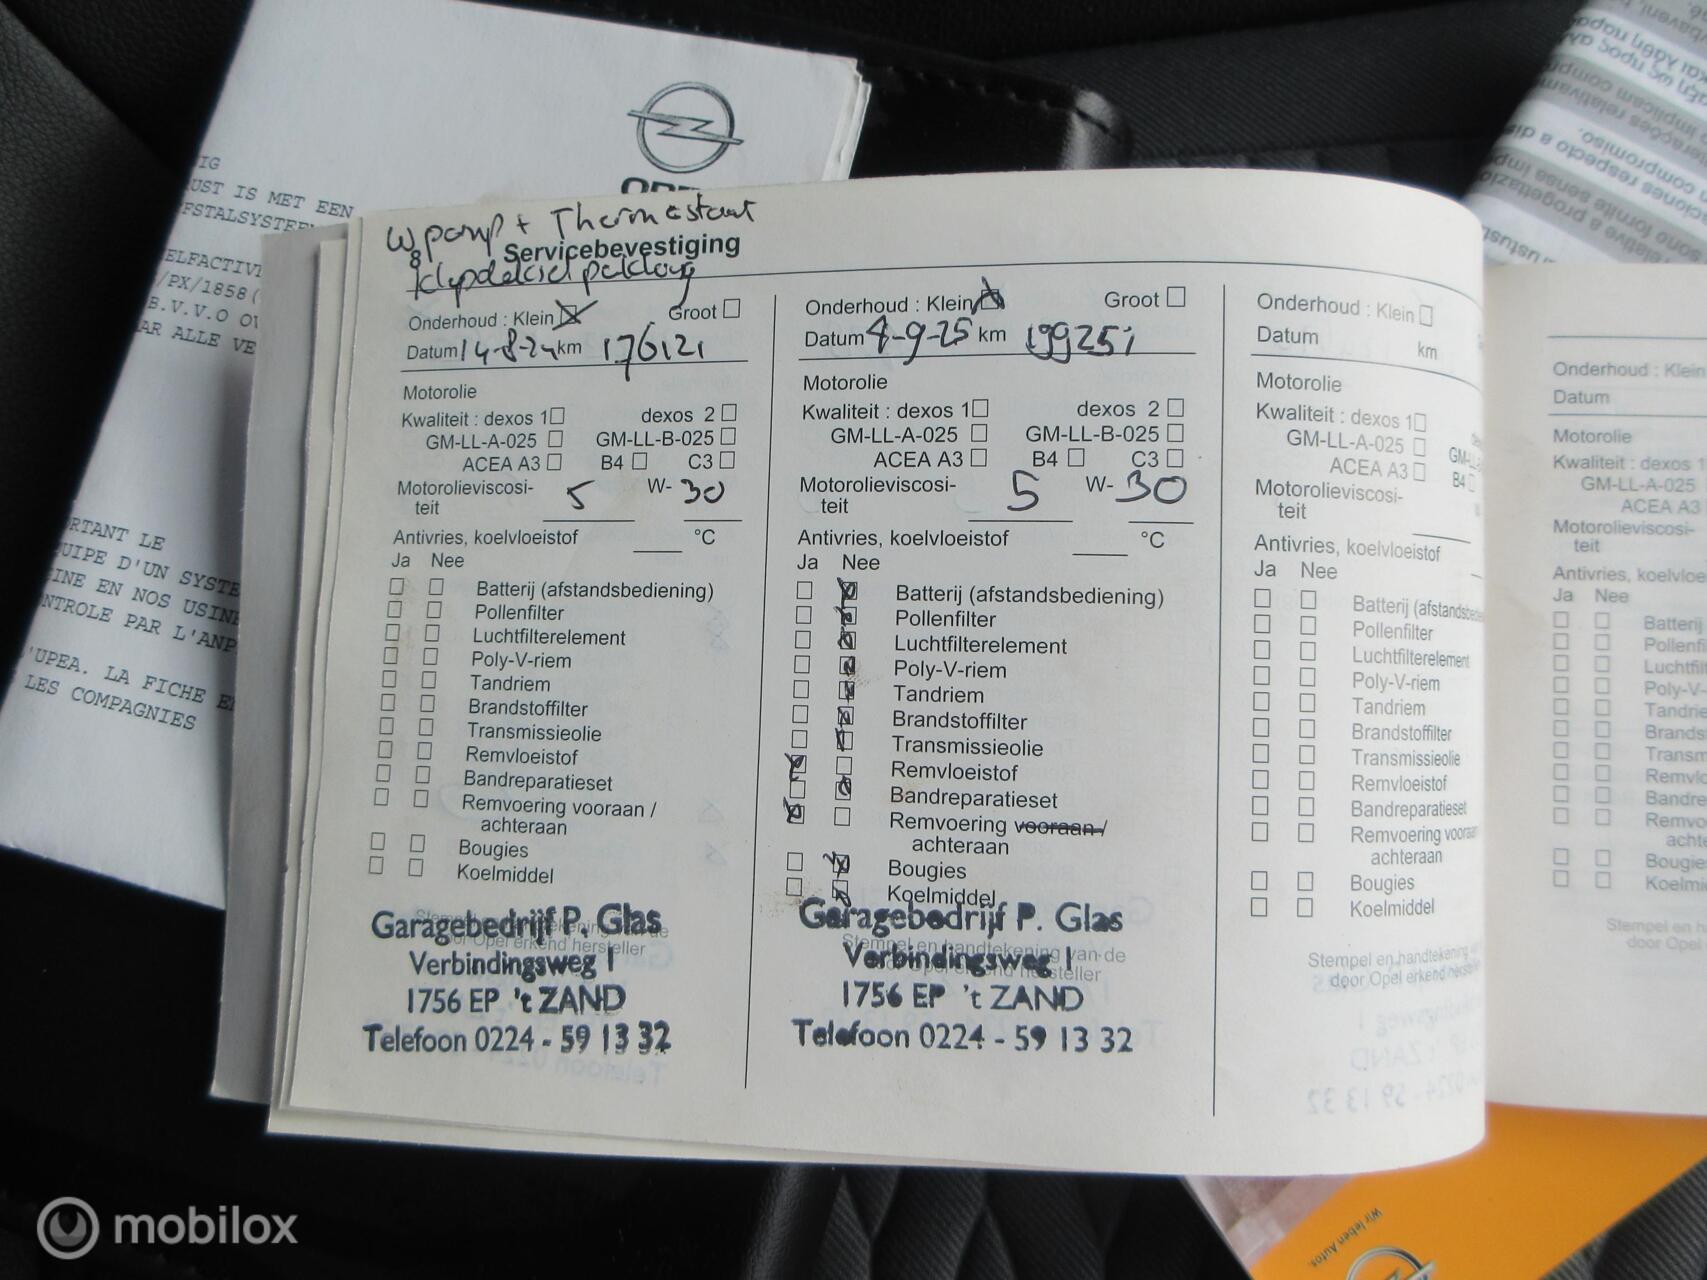 IG
UST IS MET EEN
FSTALSYSTEE
ELFACTIV
/PX/1858(
B.V.V.O OV
AR ALLE VE
RTANT LE
UIPE D'UN SYSTE
INE EN NOS USINE
NTROLE PAR L'ANP
'UPEA. LA FICHE E
LES COMPAGNIES
W pomp + Thermostaat
Servicebevestiging
& klepdeksel pakking
Onderhoud : Klein Groot
Datum 14-8-24 km 176121
Motorolie
Kwaliteit : dexos 1 dexos 2
GM-LL-A-025 GM-LL-B-025
ACEA A3 B4 C3
Motorolieviscosi-
teit 5 W- 30
Antivries, koelvloeistof °C
Ja Nee
Batterij (afstandsbediening)
Pollenfilter
Luchtfilterelement
Poly-V-riem
Tandriem
Brandstoffilter
Transmissieolie
Remvloeistof
Bandreparatieset
Remvoering vooraan /
achteraan
Bougies
Koelmiddel
Garagebedrijf P. Glas
Verbindingsweg 1
1756 EP 't ZAND
Telefoon 0224 - 59 13 32
Onderhoud : Klein Groot
Datum 4-9-25 km 199251
Motorolie
Kwaliteit : dexos 1 dexos 2
GM-LL-A-025 GM-LL-B-025
ACEA A3 B4 C3
Motorolieviscosi-
teit 5 W- 30
Antivries, koelvloeistof °C
Ja Nee
Batterij (afstandsbediening)
Pollenfilter
Luchtfilterelement
Poly-V-riem
Tandriem
Brandstoffilter
Transmissieolie
Remvloeistof
Bandreparatieset
Remvoering vooraan /
achteraan
Bougies
Koelmiddel
Stempel en handtekening van de
Garagebedrijf P. Glas
Verbindingsweg 1
1756 EP 't ZAND
Telefoon 0224 - 59 13 32
Onderhoud : Klein
Datum km
Motorolie
Kwaliteit : dexos 1
GM-LL-A-025 GM-LL
ACEA A3 B4
Motorolieviscosi-
teit
Antivries, koelvloeistof
Ja Nee
Batterij (afstandsbedie
Pollenfilter
Luchtfilterelement
Poly-V-riem
Tandriem
Brandstoffilter
Transmissieolie
Remvloeistof
Bandreparatieset
Remvoering vooraan
achteraan
Bougies
Koelmiddel
Stempel en handtekening
door Opel erkend herstelle
Onderhoud : Klein
Datum
Motorolie
Kwaliteit : dexos 1
GM-LL-A-025
ACEA A3
Motorolieviscosi-
teit
Antivries, koelvloe
Ja Nee
Batterij
Pollenfi
Luchtfil
Poly-V-
Tandrie
Brands
Transm
Remvlo
Bandre
Remvo
achte
Bougie
Koelmi
Stempel en h
door Opel
Wir leben Autos.
mobilox